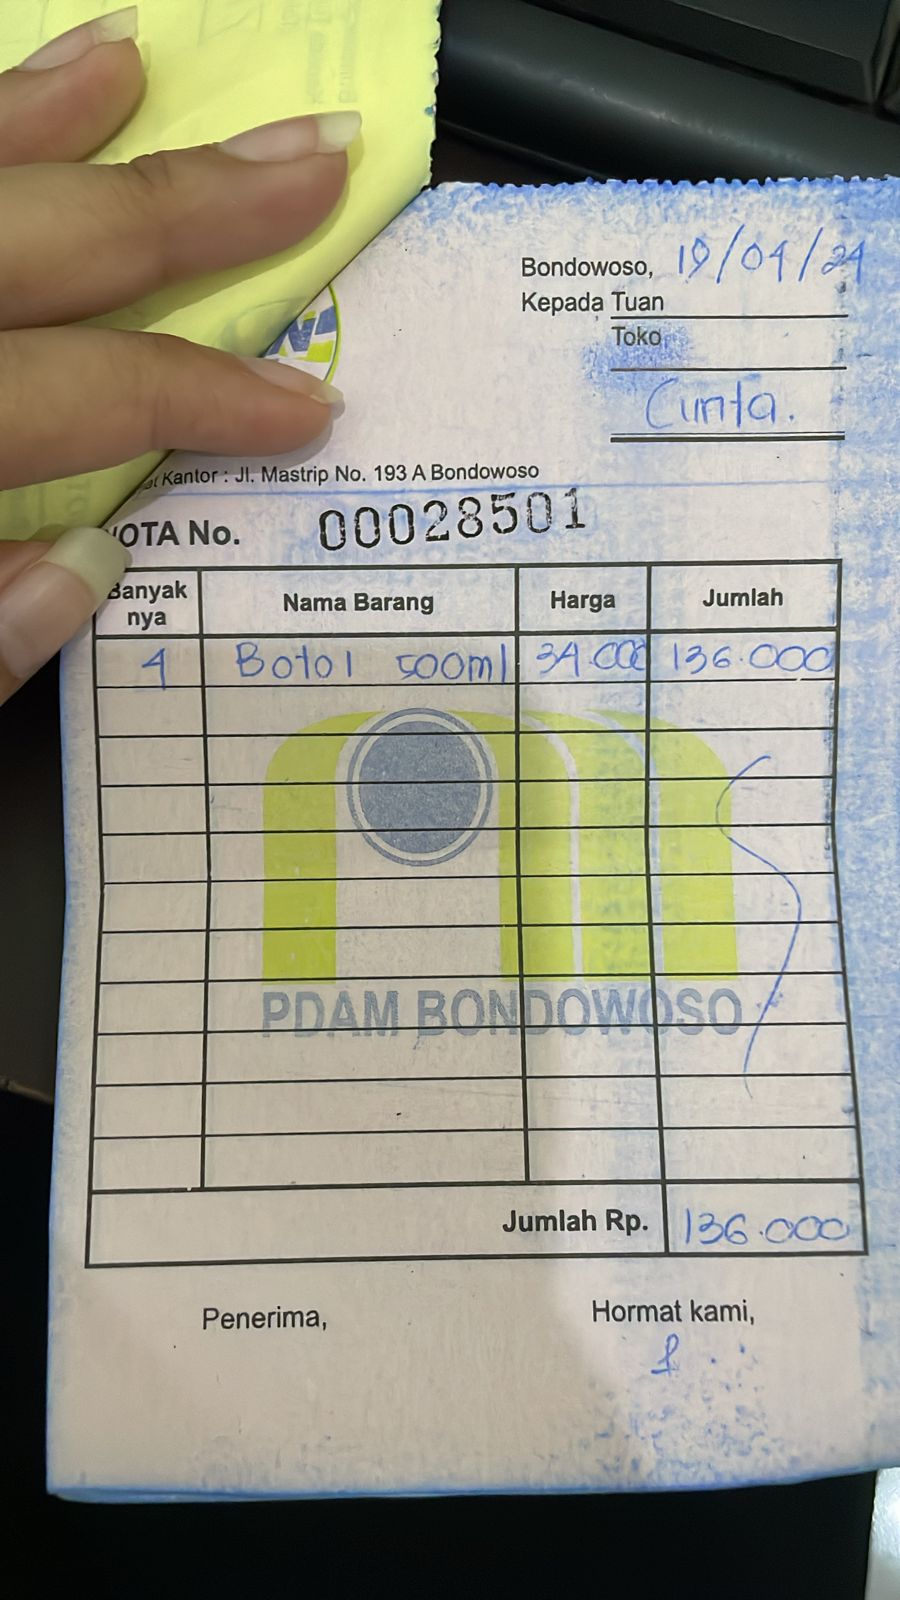 Bondowoso, 19/04/24
Kepada Tuan
Toko
Cunta.
at Kantor : Jl. Mastrip No. 193 A Bondowoso
NOTA No. 00028501
Banyak nya Nama Barang Harga Jumlah
4 Botol 500ml 34.000 136.000
PDAM BONDOWOSO
Jumlah Rp. 136.000
Penerima, Hormat kami,